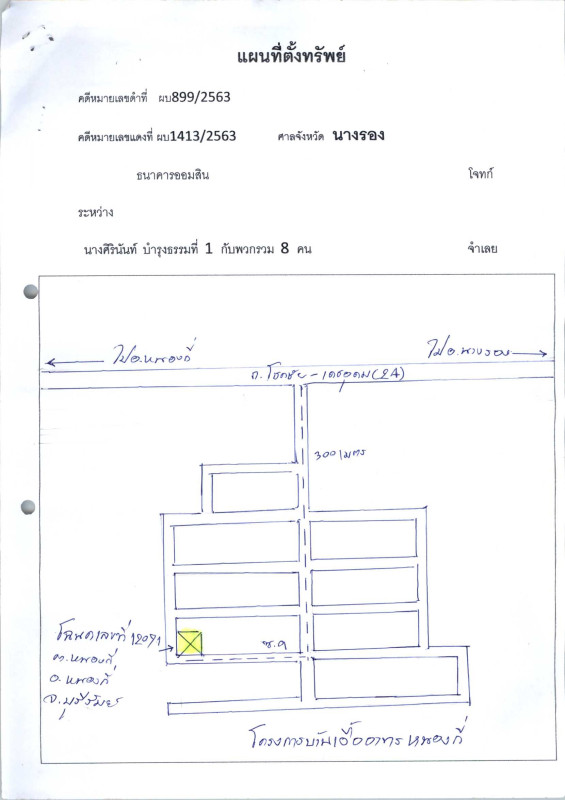 แผนที่ตั้งทรัพย์
คดีหมายเลขดำที่ ผบ899/2563
คดีหมายเลขแดงที่ ผบ1413/2563 ศาลจังหวัด นางรอง
ธนาคารออมสิน โจทก์
ระหว่าง
นางศิรินันท์ บำรุงธรรมที่ 1 กับพวกรวม 8 คน จำเลย
ไปอ.หนองกี่ ไปอ.นางรอง
ถ.โชคชัย - เดชอุดม (24)
300 เมตร
โฉนดเลขที่ 12091
ซ.ค
ต.หนองกี่
อ.หนองกี่
จ.บุรีรัมย์
โครงการบ้านเอื้ออาทร หนองกี่